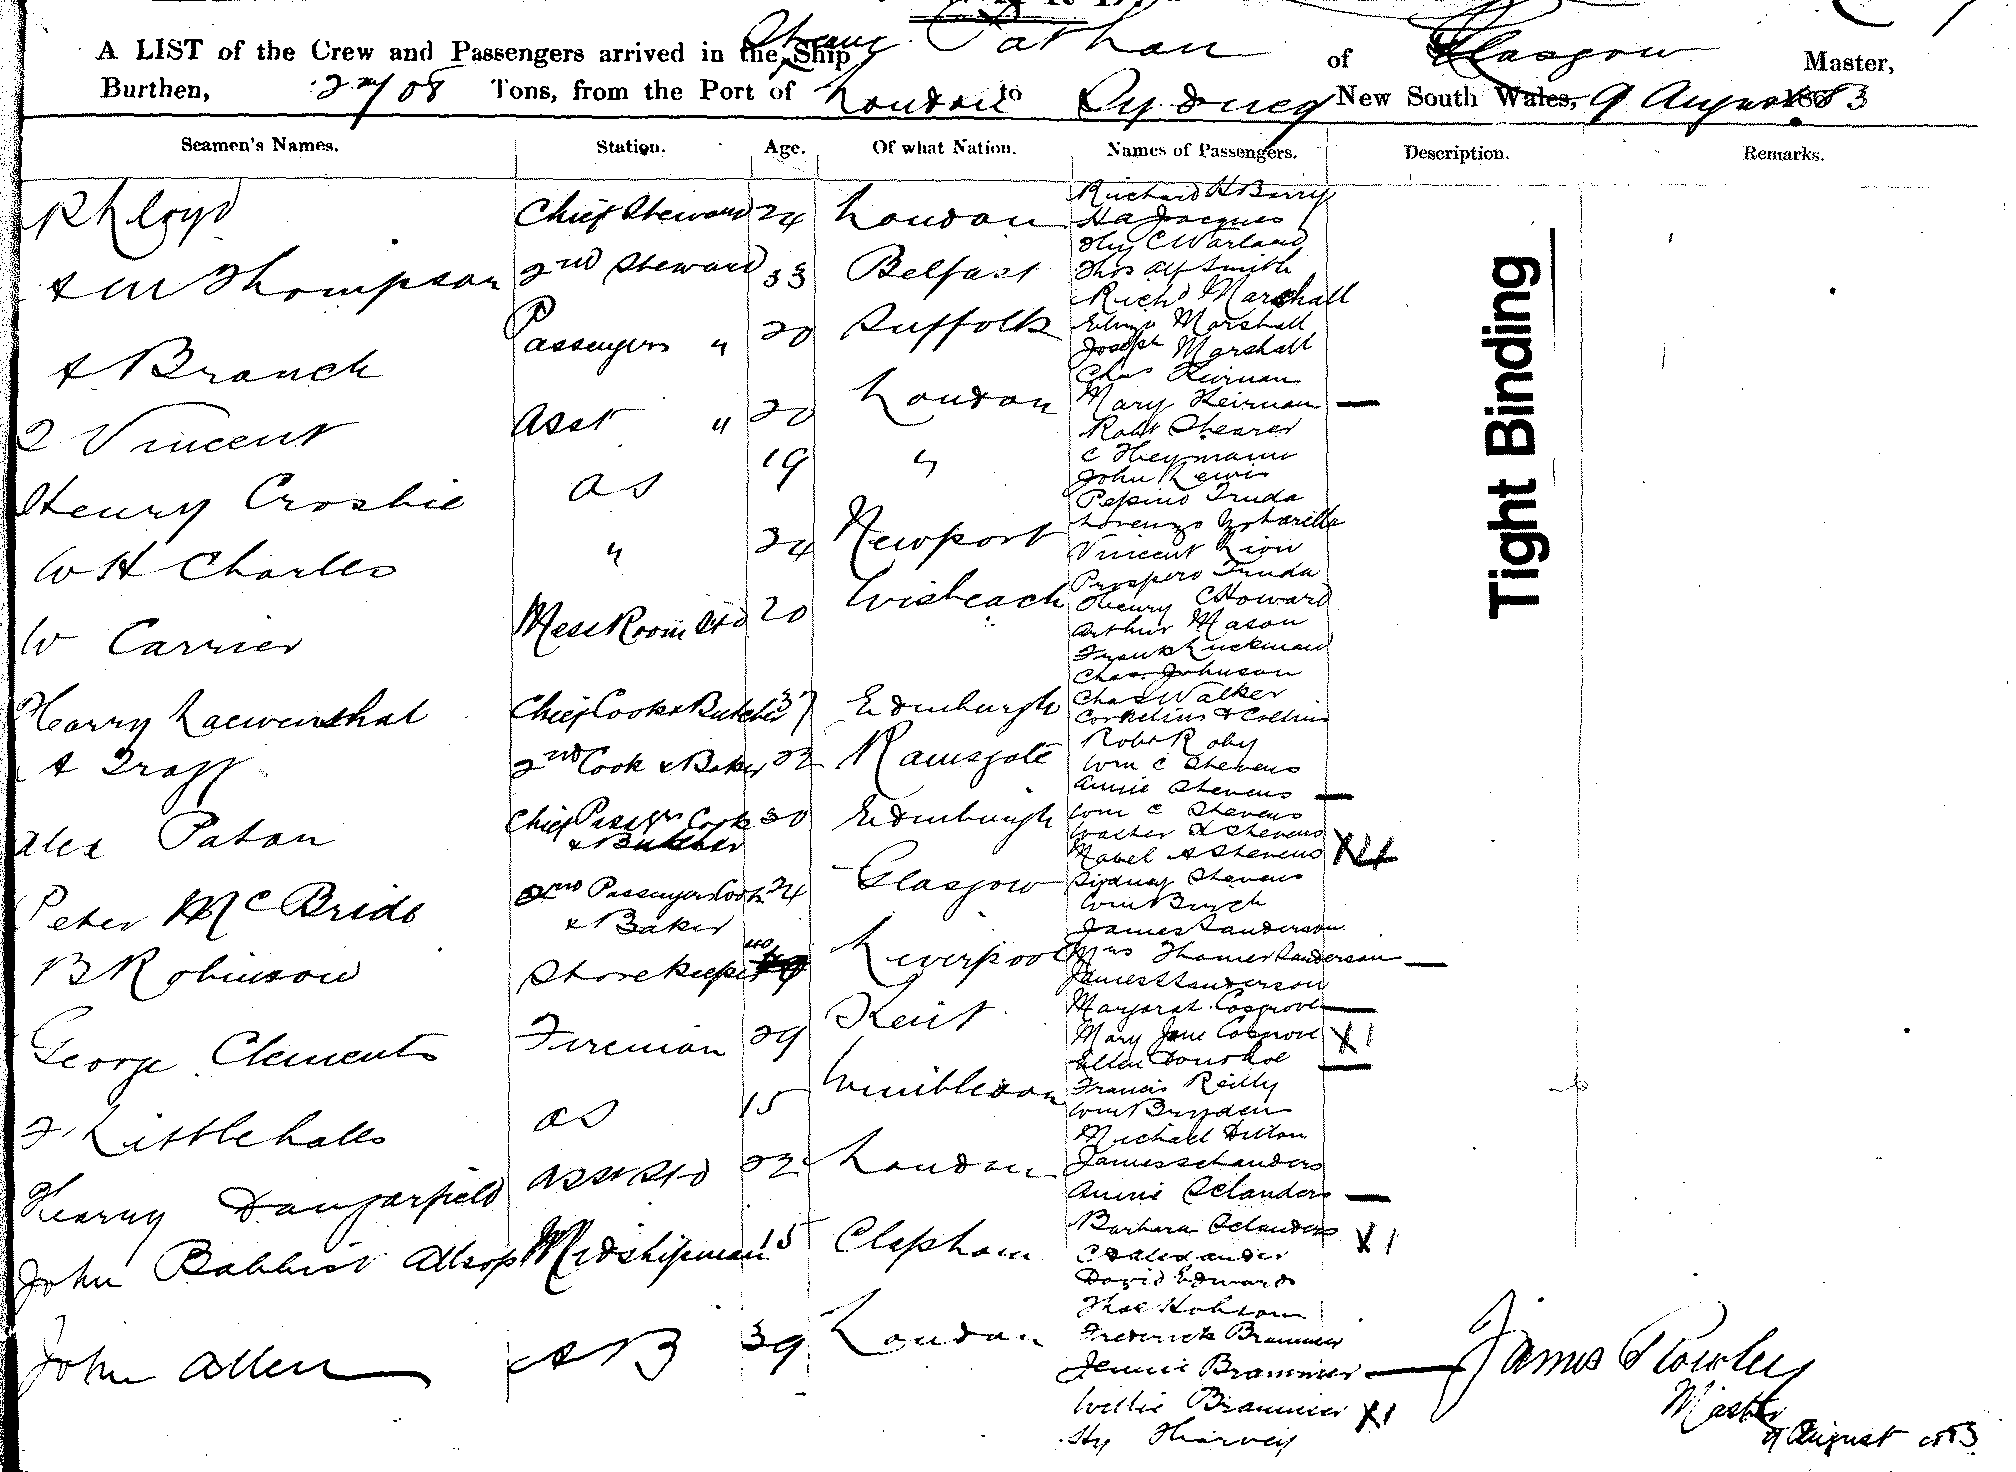 A LIST of the Crew and Passengers arrived in the Ship Pathan of Glasgow Master,
Burthen, Tons, from the Port of London to Sydney New South Wales, 9 August 1883
Seamen's Names. Station. Age. Of what Nation. Names of Passengers. Description. Remarks.
R Lloyd Chief Steward 24 London
A M Thompson 2nd Steward 33 Belfast
A Branch Passengers " 20 Suffolk
Vincent Asst " 20 London
Henry Crosbie as 19 "
W H Charles " 24 Newport
W Carrier Mess Room Std 20 Wisbeach
Harry Loewenthal Chief Cook & Butcher 37 Edinburgh
A 2nd Cook & Baker 22 Ramsgate
Alex Paton Chief Passgr Cook & Butcher 30 Edinburgh
Peter McBride 2nd Passengers Cook & Baker 24 Glasgow
B Robinson Storekeeper Liverpool
George Clements Fireman 29 Kent
F Littlehales as 15 Wimbledon
Henry Dangarfield Asst Std 22 London
John Babbist Allsop Midshipman 15 Clapham
John Allen AB 39 London
Richard H Barry
H A Jacques
Hy C Warland
Thos Alf Smith
Richd Marshall
Marshall
Joseph Marshall
Chas Keirnan
Mary Keirnan —
Robt Shearer
C Heymann
John Lewis
Pepino Truda
Lorenzo
Vincent
Prospero Truda
Henry C Howard
Arthur Mason
Frank Luckman
Chas Johnson
Chas Walker
Cornelius Collins
Robt Roby
Wm C Stevens
Annie Stevens —
Wm C Stevens
Walter Stevens
Mabel A Stevens X4
Sydney Stevens
Wm Burch
James Sanderson
Mrs Sanderson —
James Sanderson
Margaret Cosgrove —
Mary Jane Cosgrove X1
Ellen —
Francis Reilly
Wm Bryden
Michael Dillon
James Selanders
Annie Selanders —
Barbara Selanders X1
C Alexander
David Edwards
Thos Hobson
Frederick Brammer
Jennie Brammer —
Willie Brammer X1
Hy Harvey
Tight Binding
James Rowley
Master
9 August 1883